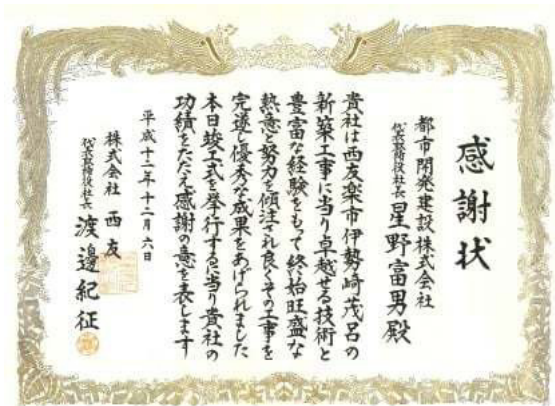 感謝状
都市開発建設株式会社
代表取締役社長 星野富男殿
貴社は西友楽市伊勢崎茂呂の
新築工事に当り卓越せる技術と
豊富な経験をもって終始旺盛な
熱意と努力を傾注され良くその工事を
完遂し優秀な成果をあげられました
本日竣工式を挙行するに当り貴社の
功績をたたえ感謝の意を表します
平成十二年十二月六日
株式会社 西友
代表取締役社長 渡邉紀征